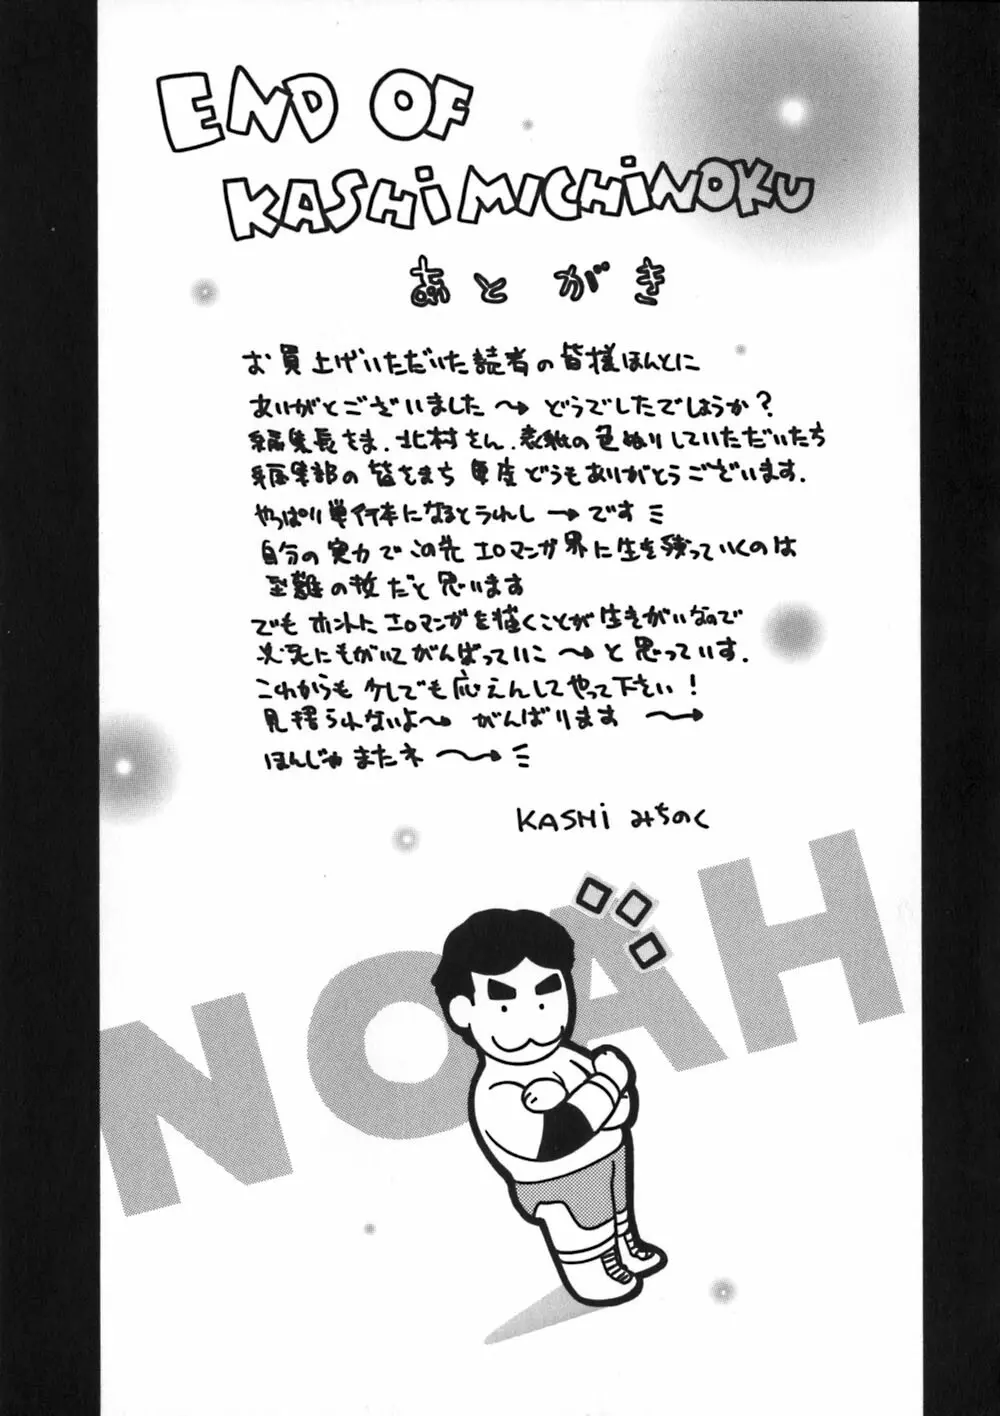 END OF
KASHIMICHINOKU
あとがき
お買上げいただいた読者の皆様ほんとに
ありがとございました〜どうでしたでしょうか?
編集長さま、北村さん、表紙の色ぬりしていただいたち
編集部の皆さまち 毎度どうもありがとうございます.
やっぱり単行本になるとうれし〜です
自分の実力でこの先エロマンガ界に生き残っていくのは
至難の技だと思います
でもホントにエロマンガを描くことが生きがいなので
必死にもがいてがんばっていこ〜と思っています.
これからも少しでも応えんしてやって下さい!
見捨られないよ〜がんばります〜
ほんじゃまたネ〜
KASHiみちのく
NOAH